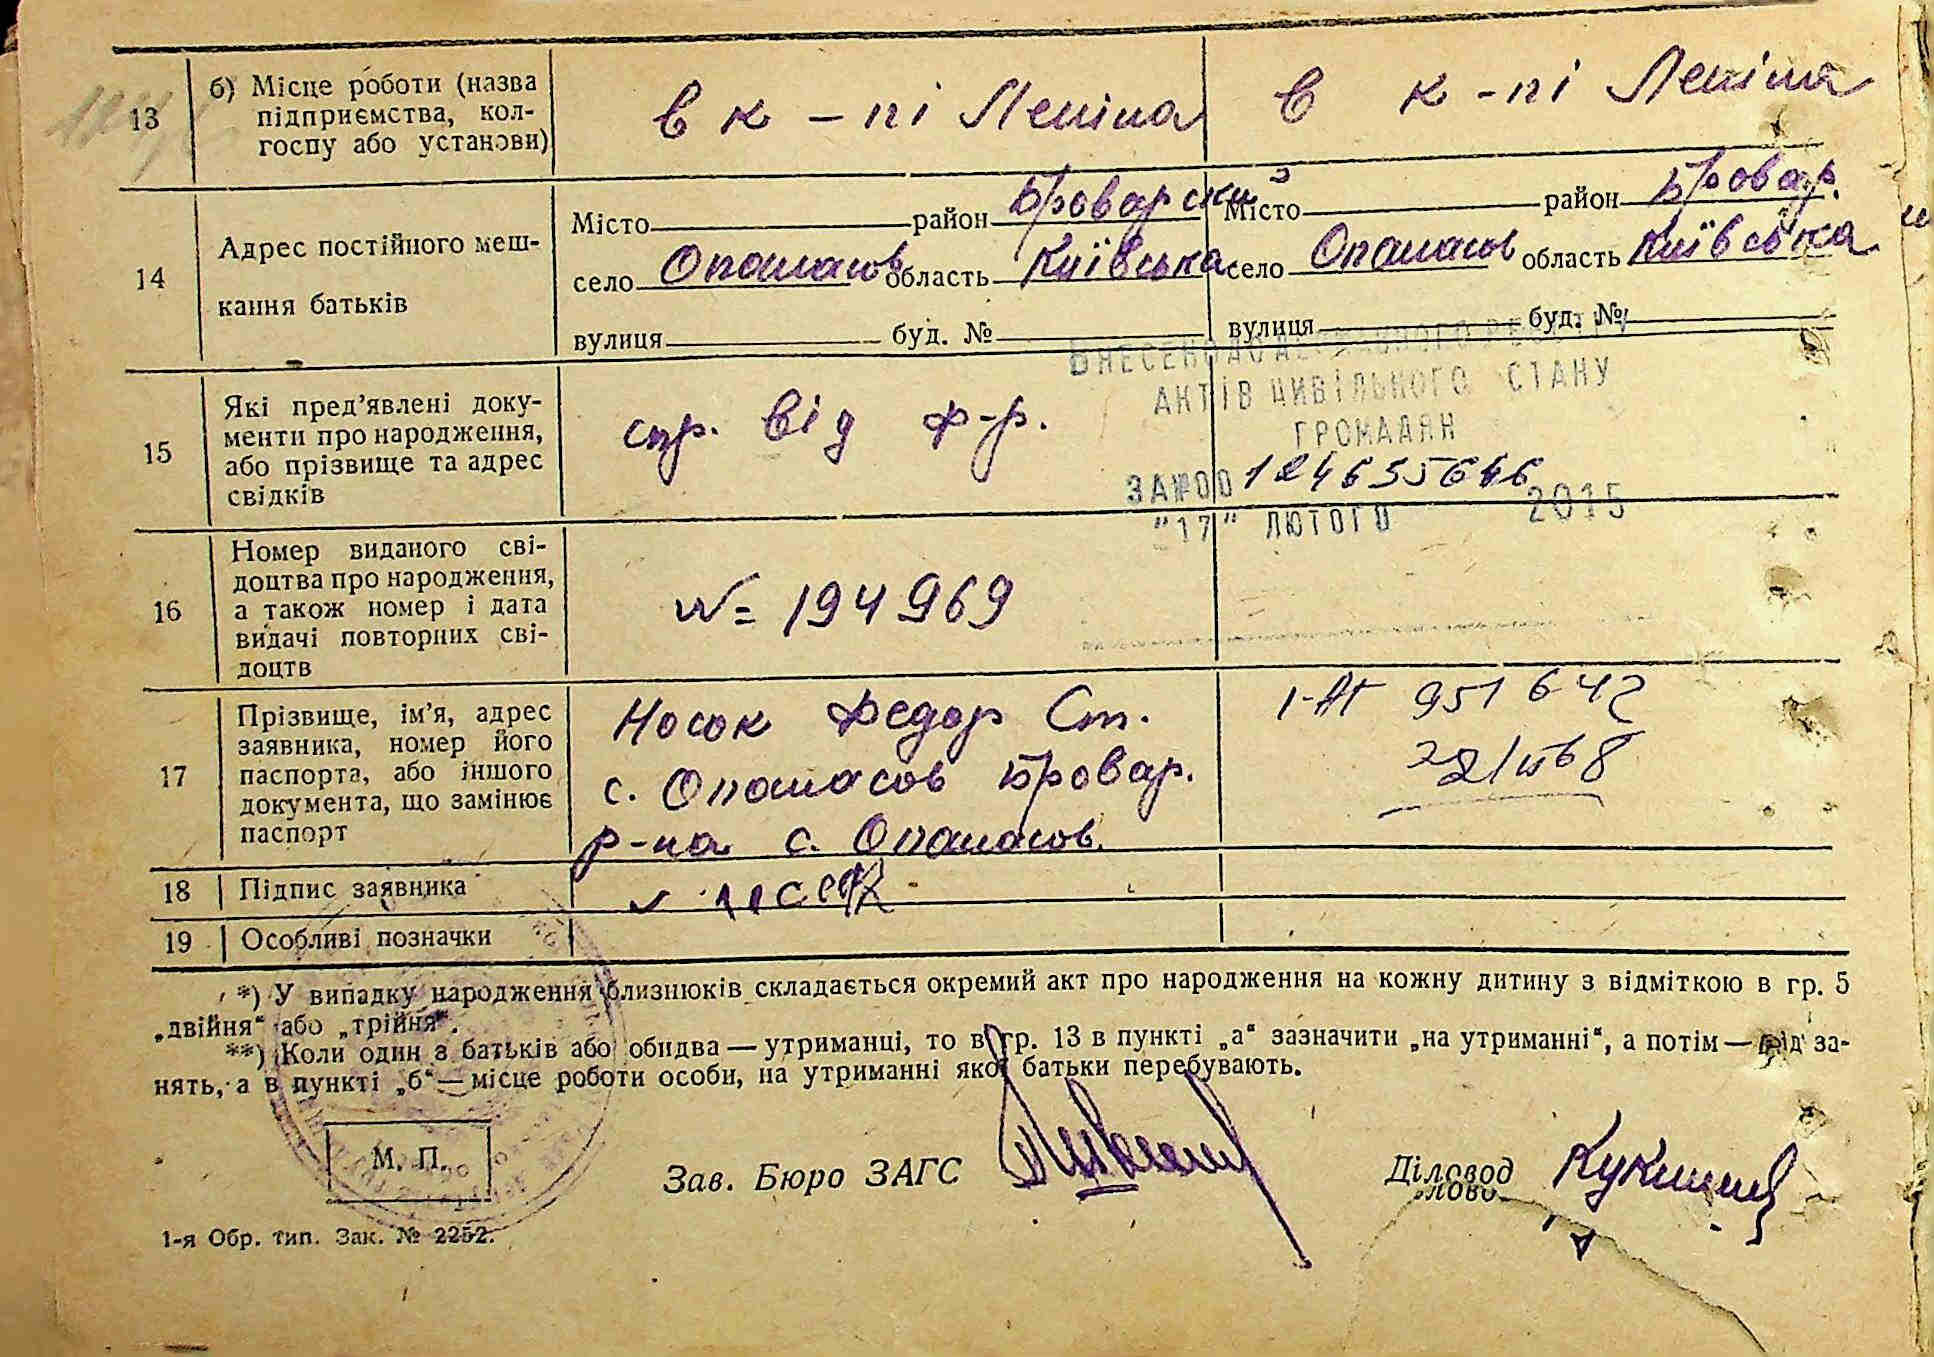 13
б) Місце роботи (назва
підприємства, кол-
госпу або установи)
в к-пі Леніна
в к-пі Леніна
14
Адрес постійного меш-
кання батьків
Місто район Броварский
село Опанасов область Київська
вулиця буд. №
Місто район Бровар.
село Опанасов область Київська
вулиця буд. №
ВНЕСЕНО ДО ДЕРЖАВНОГО РЕЄСТРУ
АКТІВ ЦИВІЛЬНОГО СТАНУ
ГРОМАДЯН
ЗА №00124655646
"17" ЛЮТОГО 2015
15
Які пред’явлені доку-
менти про народження,
або прізвище та адрес
свідків
спр. від ф-р.
16
Номер виданого сві-
доцтва про народження,
а також номер і дата
видачі повторних сві-
доцтв
№ 194969
17
Прізвище, ім’я, адрес
заявника, номер його
паспорта, або іншого
документа, що замінює
паспорт
Носок Федор Ст.
с. Опанасов Бровар.
р-на с. Опанасов
951642
18 Підпис заявника
19 Особливі позначки
*) У випадку народження близнюків складається окремий акт про народження на кожну дитину з відміткою в гр. 5
„двійня“ або „трійня“.
**) Коли один з батьків або обидва — утриманці, то в гр. 13 в пункті „а“ зазначити „на утриманні“, а потім — рід за-
нять, а в пункті „б“ — місце роботи особи, на утриманні якої батьки перебувають.
М. П.
Зав. Бюро ЗАГС
Діловод
1-я Обр. тип. Зак. № 2252.